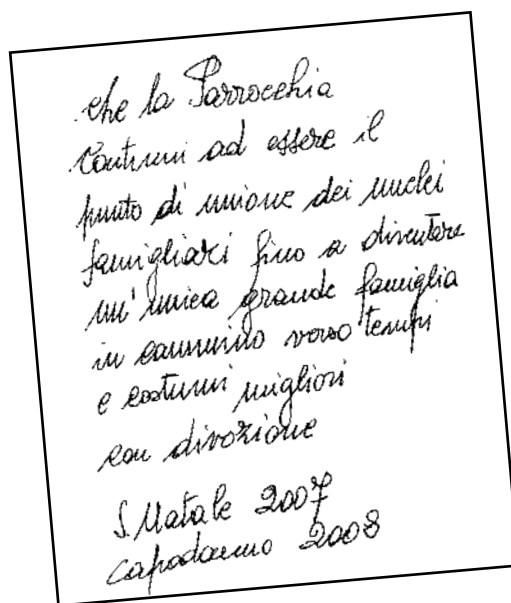 che la Parrocchia
continui ad essere il
punto di unione dei nuclei
famigliari fino a diventare
un'unica grande famiglia
in cammino verso tempi
e costumi migliori
con divozione
S. Natale 2007
Capodanno 2008